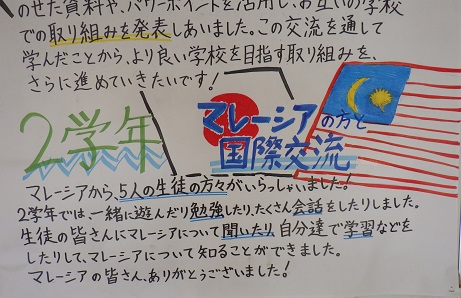 のせた資料や、パワーポイントを活用し、お互いの学校
での取り組みを発表しあいました。この交流を通して
学んだことから、より良い学校を目指す取り組みを、
さらに進めていきたいです！
2学年
マレーシアの方と
国際交流
マレーシアから、5人の生徒の方々がいらっしゃいました！
2学年では、一緒に遊んだり勉強したり、たくさん会話をしたりしました。
生徒の皆さんにマレーシアについて聞いたり、自分達で学習などを
したりして、マレーシアについて知ることができました。
マレーシアの皆さん、ありがとうございました！